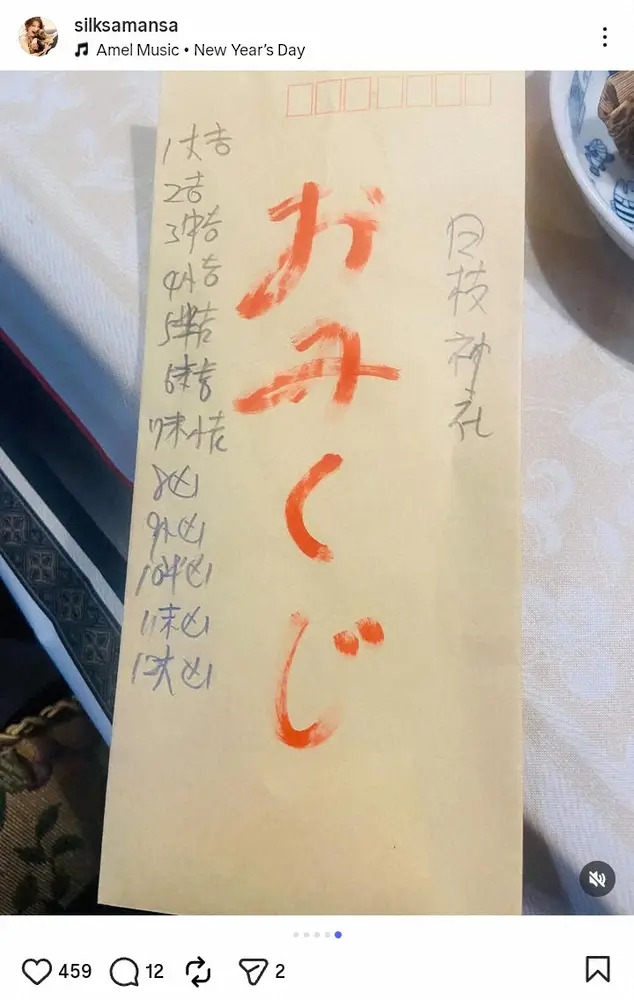 silksamansa
Amel Music • New Year's Day
日枝神社
おみくじ
1大吉
2吉
3中吉
4小吉
5半吉
6末吉
7末小吉
8凶
9小凶
10半凶
11末凶
12大凶
459
12
2